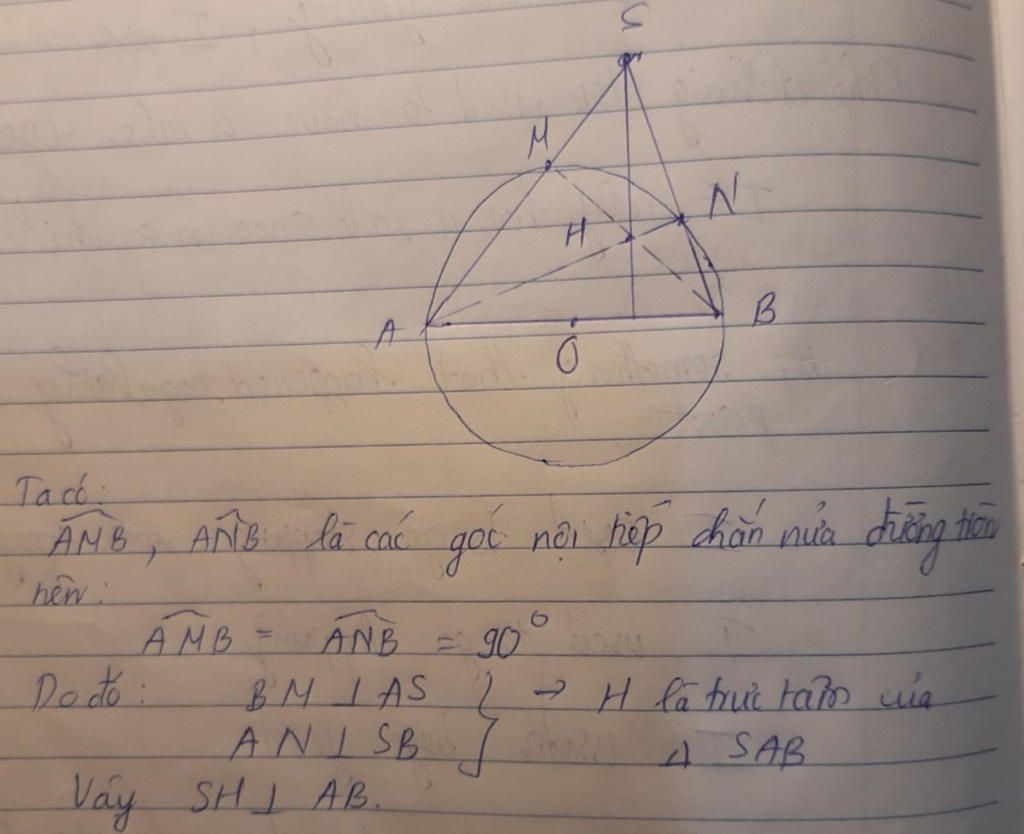 S
M
N
H
A
B
O
Ta có:
AMB, ANB là các góc nội tiếp chắn nửa đường tròn
nên:
AMB = ANB = 90°
Do đó: BM ⊥ AS } → H là trực tâm của
AN ⊥ SB Δ SAB
Vậy SH ⊥ AB.